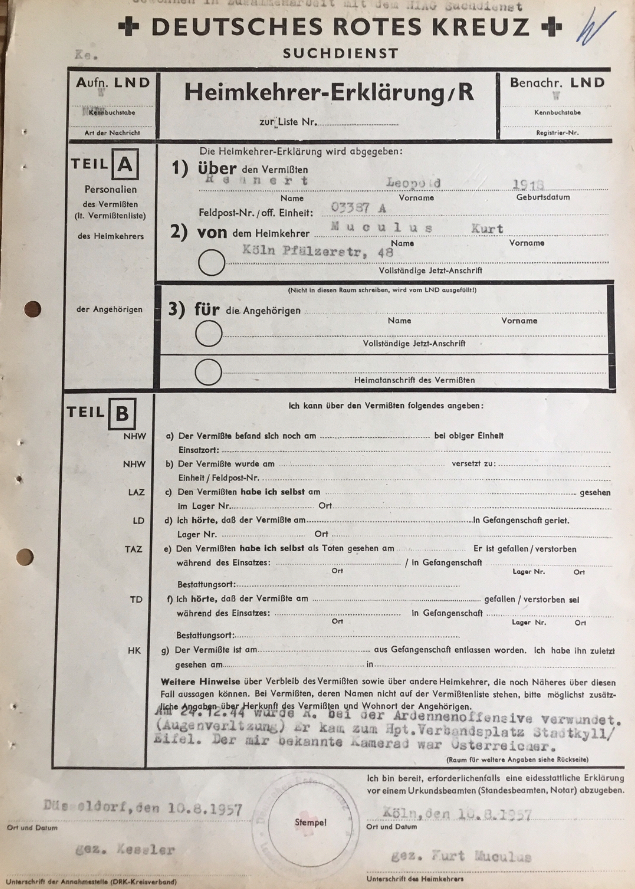 gewonnen in Zusammenarbeit mit dem HIAG Suchdienst
DEUTSCHES ROTES KREUZ
SUCHDIENST
Ke.
Aufn. LND
Kennbuchstabe
Art der Nachricht
Heimkehrer-Erklärung/R
zur Liste Nr.
Benachr. LND
Kennbuchstabe
Registrier-Nr.
TEIL A
Personalien
des Vermißten
(lt. Vermißtenliste)
des Heimkehrers
der Angehörigen
Die Heimkehrer-Erklärung wird abgegeben:
1) über den Vermißten
Leopold 1918
Name Vorname Geburtsdatum
Feldpost-Nr./off. Einheit: 03387 A
2) von dem Heimkehrer Muculus Kurt
Name Vorname
Köln Pfälzerstr, 48
Vollständige Jetzt-Anschrift
(Nicht in diesen Raum schreiben, wird vom LND ausgefüllt!)
3) für die Angehörigen
Name Vorname
Vollständige Jetzt-Anschrift
Heimatanschrift des Vermißten
TEIL B
Ich kann über den Vermißten folgendes angeben:
NHW a) Der Vermißte befand sich noch am bei obiger Einheit
Einsatzort:
NHW b) Der Vermißte wurde am versetzt zu:
Einheit/Feldpost-Nr.
LAZ c) Den Vermißten habe ich selbst am gesehen
im Lager Nr. Ort
LD d) Ich hörte, daß der Vermißte am in Gefangenschaft geriet.
Lager Nr. Ort
TAZ e) Den Vermißten habe ich selbst als Toten gesehen am Er ist gefallen/verstorben
während des Einsatzes: / in Gefangenschaft
Ort Lager Nr. Ort
Bestattungsort:
TD f) Ich hörte, daß der Vermißte am gefallen/verstorben sei
während des Einsatzes: in Gefangenschaft
Ort Lager Nr. Ort
Bestattungsort:
HK g) Der Vermißte ist am aus Gefangenschaft entlassen worden. Ich habe ihn zuletzt
gesehen am in
Weitere Hinweise über Verbleib des Vermißten sowie über andere Heimkehrer, die noch Näheres über diesen
Fall aussagen können. Bei Vermißten, deren Namen nicht auf der Vermißtenliste stehen, bitte möglichst zusätz-
liche Angaben über Herkunft des Vermißten und Wohnort der Angehörigen.
Am 24.12.44 wurde A. bei der Ardennenoffensive verwundet.
(Augenverltzung) Er kam zum Hpt.Verbandsplatz Stadtkyll/
Eifel. Der mir bekannte Kamerad war Österreicher.
(Raum für weitere Angaben siehe Rückseite)
Ich bin bereit, erforderlichenfalls eine eidesstattliche Erklärung
vor einem Urkundsbeamten (Standesbeamten, Notar) abzugeben.
Düsseldorf,den 10.8.1957
Ort und Datum
Stempel
Köln,den 10.8.1957
Ort und Datum
gez. Kessler
gez. Kurt Muculus
Unterschrift der Annahmestelle (DRK-Kreisverband)
Unterschrift des Heimkehrers